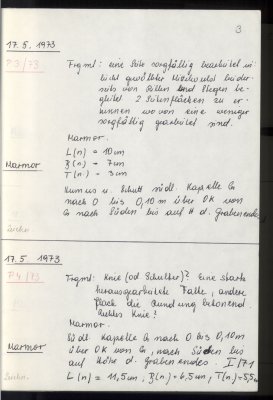 3
17. 5. 1973
P3/73
Frgmt: eine Seite sorgfältig bearbeitet mit
leicht gewölbter Mittelwulst beider-
seits von Rillen und Stegen be-
gleitet 2 Seitenflächen zu er-
kennen wovon eine weniger
sorgfältig gearbeitet sind.
Marmor.
L(n) = 10 cm
Marmor
B(n) = 7 cm
T(n) = 3 cm
Humus u. Schutt südl. Kapelle G
nach 0 bis 0,10 m über OK von
G nach Süden bis auf H d. Grabenende
Zeichn.
17. 5. 1973
P4/73
Frgmt: Knie (od Schulter)? eine stark
herausgearbeitete Falte, andere
flach die Rundung betonend.
Marmor.
Südl. Kapelle G nach 0 bis 0,10 m
Marmor
über OK von G, nach Süden bis
auf Höhe d. Grabenendes. I/71
Zeichn.
L(n) = 11,5 cm, B(n) = 6,5 cm, T(n) = 5,5